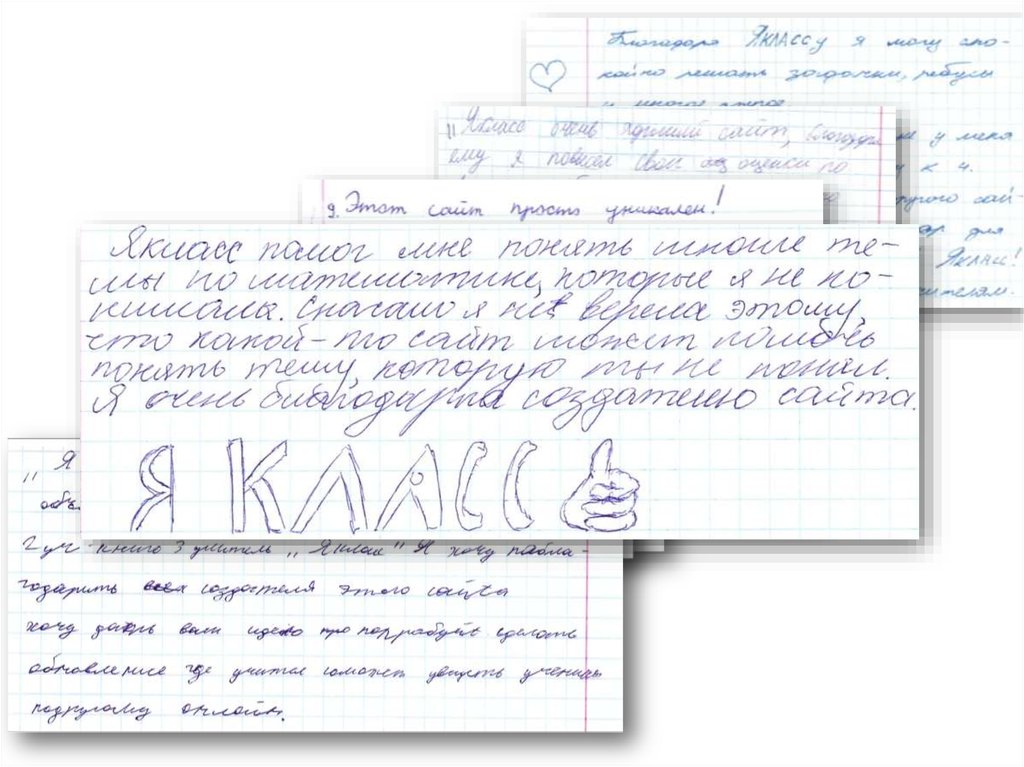 Благодаря ЯКЛАССу я могу спо-
койно решать задачки, ребусы
и много
не у меня
у к 4.
другого сай-
для
Якласс очень хороший сайт, благодаря
ему я повысил свои оценки по
9. Этот сайт просто уникален!
Якласс помог мне понять многие те-
мы по математике, которые я не по-
нимала. Сначало я не верела этому,
что какой-то сайт может помочь
понять тему, которую ты не понял.
Я очень благодарна создателю сайта.
Я КЛАСС
,, Я
объ
2 уч - книга 3 учитель ,, Яклас" Я хочу побла-
годарить создателя этого сайта
хочу дать вам идею про попрабуйте сделать
обновление где учитель сможет увидеть
онлайн.